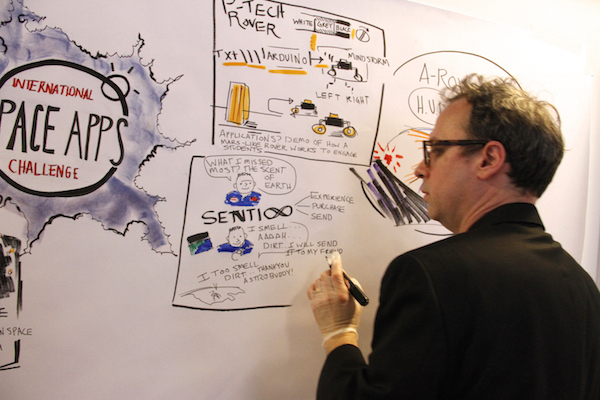 INTERNATIONAL
SPACE APPS
CHALLENGE
P-TECH
ROVER
WHITE GREY BLACK
TXT)))) ARDUINO MINDSTORM
LEFT RIGHT
APPLICATIONS? DEMO OF HOW A
MARS-LIKE ROVER WORKS TO ENGAGE
STUDENTS
WHAT I MISSED
MOST? THE SCENT OF
EARTH
SENTI∞
EXPERIENCE
PURCHASE
SEND
I SMELL
AAAAH...
DIRT. I WILL SEND
IT TO MY FRIEND
I TOO SMELL
DIRT...
THANKYOU
ASTROBUDDY!
A-RO
HUM
N SPACE